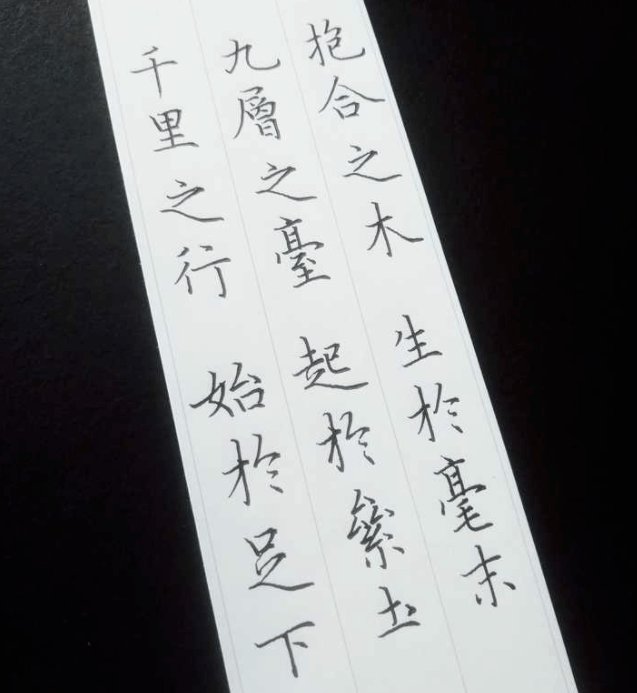 抱合之木 生於毫末
九層之臺 起於絫土
千里之行 始於足下